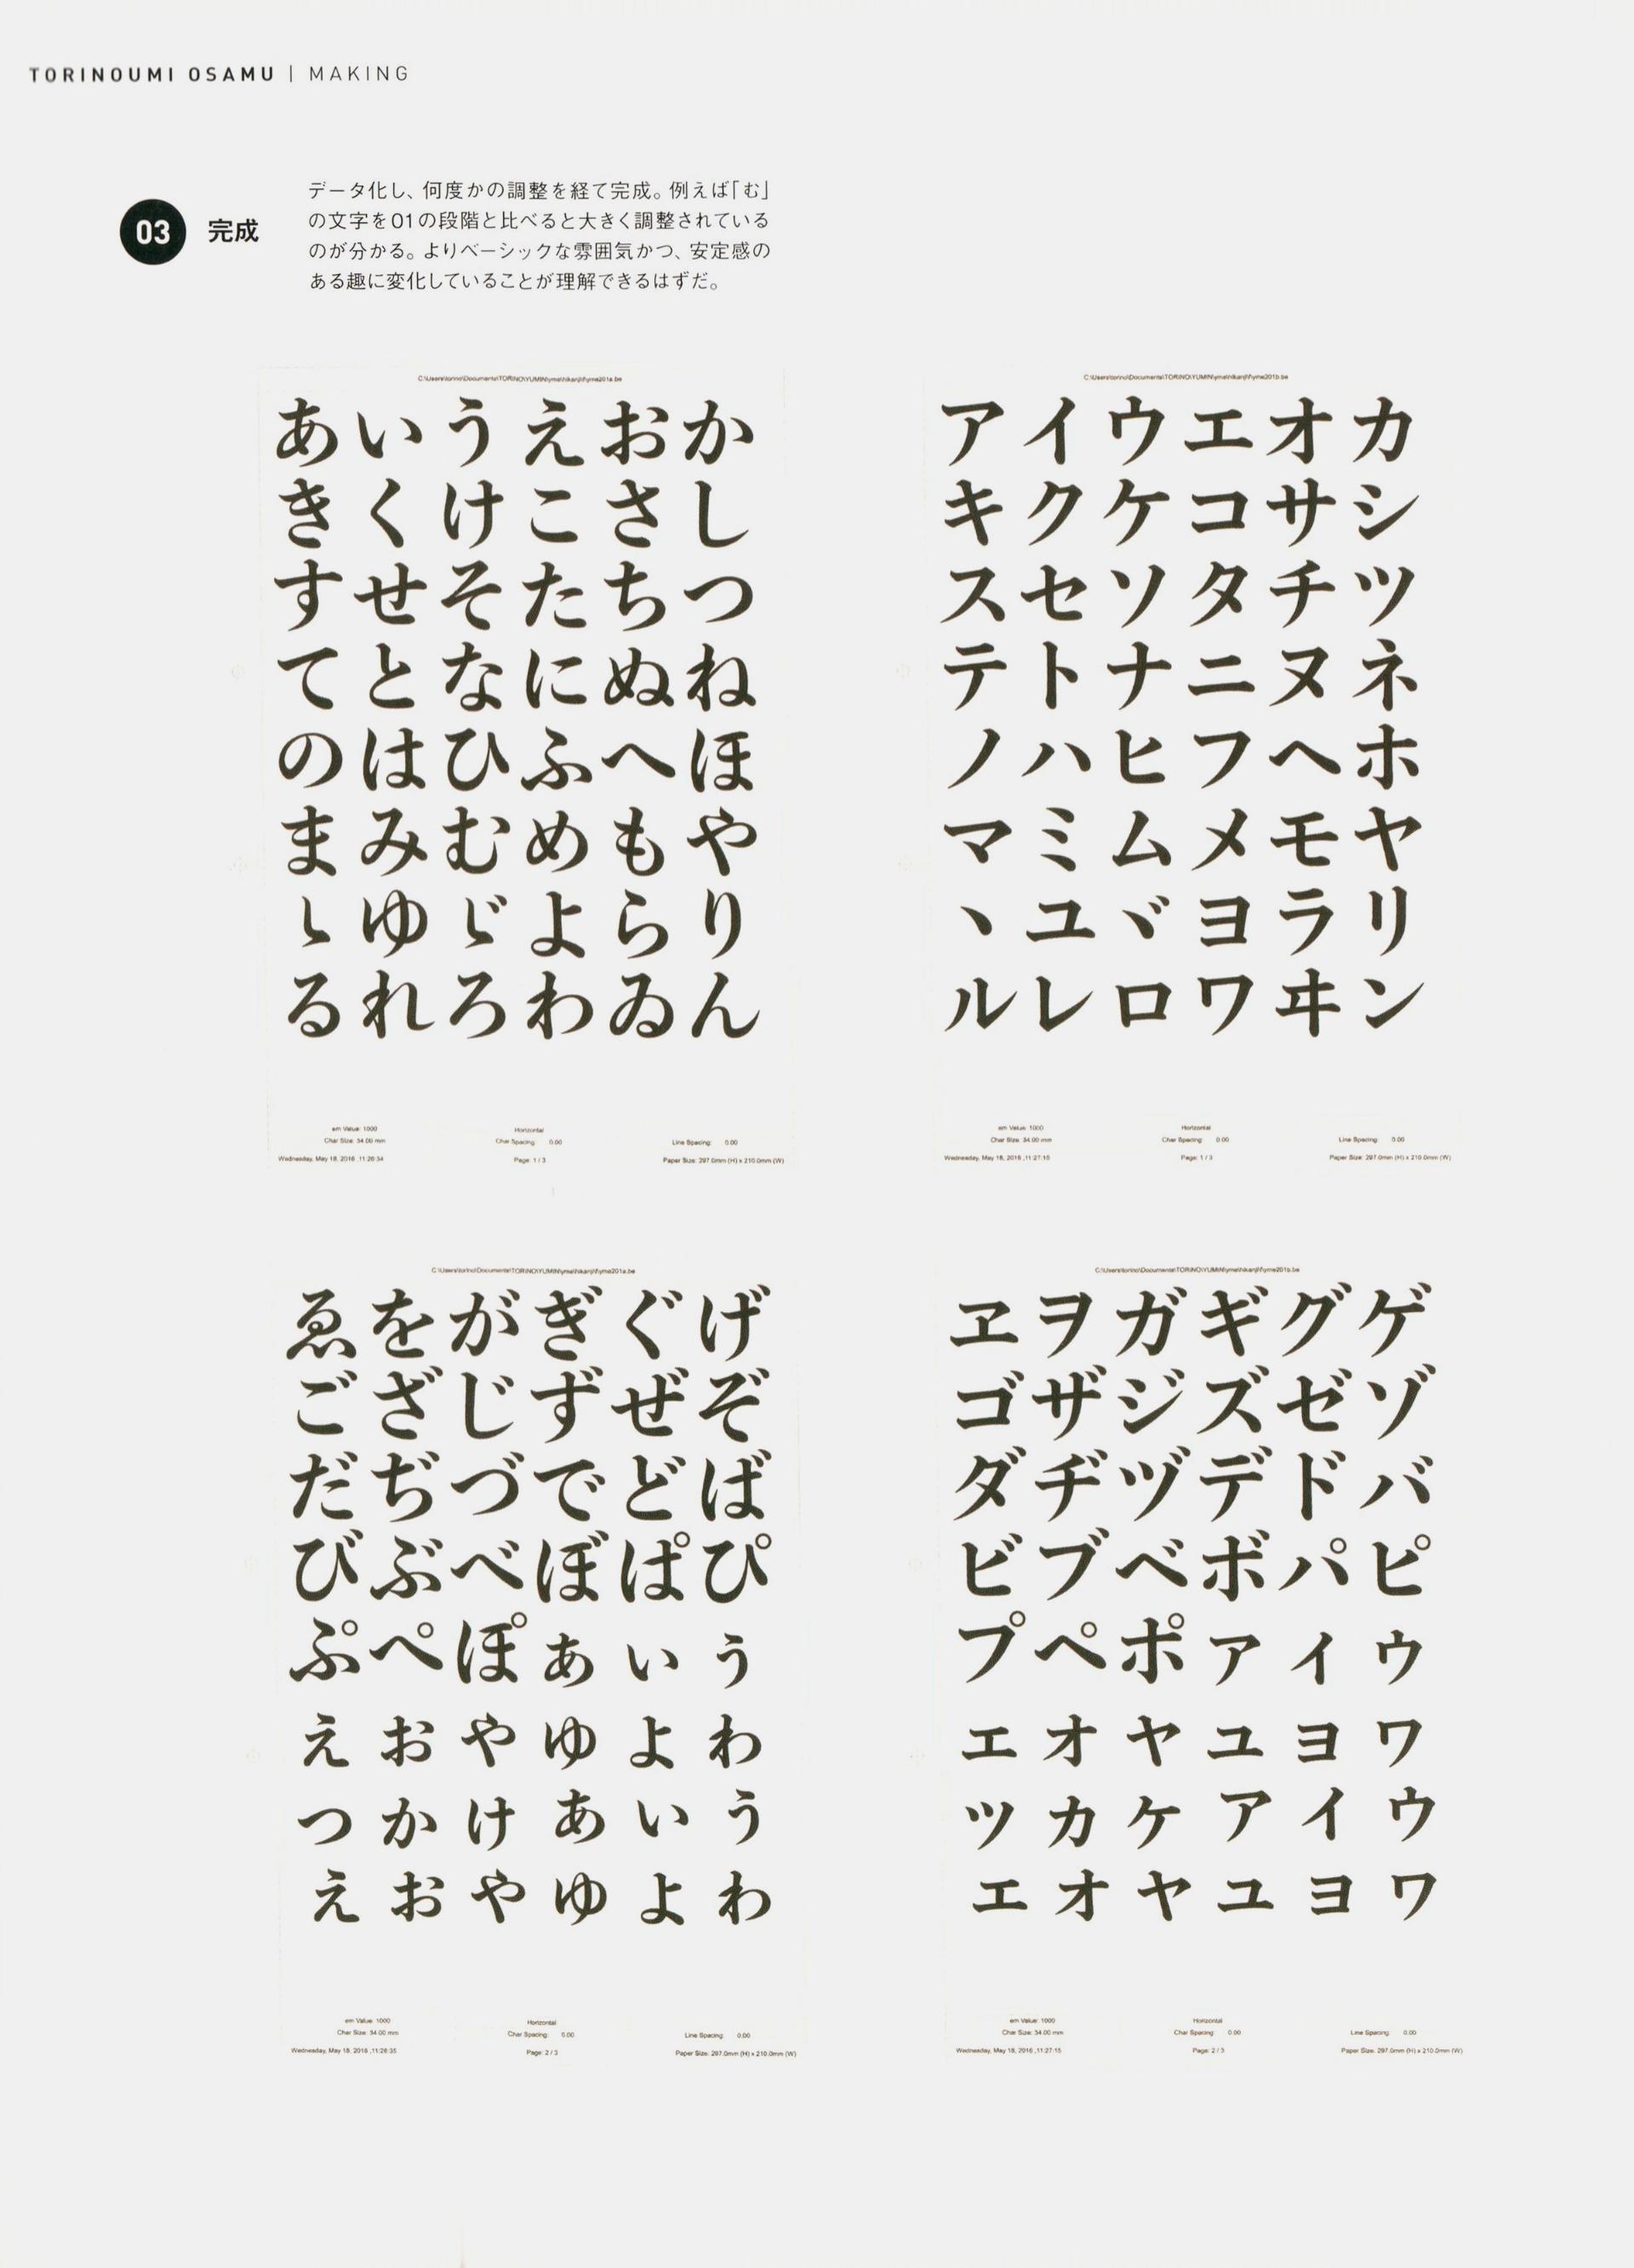 TORINOUMI OSAMU | MAKING
03 完成
データ化し、何度かの調整を経て完成。例えば「む」
の文字を01の段階と比べると大きく調整されている
のが分かる。よりベーシックな雰囲気かつ、安定感の
ある趣に変化していることが理解できるはずだ。
あいうえおか
きくけこさし
すせそたちつ
てとなにぬね
のはひふへほ
まみむめもや
ゝゆゞよらり
るれろわゐん
em Value: 1000
Horizontal
Char Size: 34.00 mm
Char Spacing: 0.00
Line Spacing: 0.00
Wednesday, May 18, 2016 ,11:26:34
Page: 1 / 3
Paper Size: 297.0mm (H) x 210.0mm (W)
アイウエオカ
キクケコサシ
スセソタチツ
テトナニヌネ
ノハヒフヘホ
マミムメモヤ
ヽユヾヨラリ
ルレロワヰン
em Value: 1000
Horizontal
Char Size: 34.00 mm
Char Spacing: 0.00
Line Spacing: 0.00
Wednesday, May 18, 2016 ,11:27:15
Page: 1 / 3
Paper Size: 297.0mm (H) x 210.0mm (W)
ゑをがぎぐげ
ござじずぜぞ
だぢづでどば
びぶべぼぱぴ
ぷぺぽぁぃぅ
ぇぉゃゅょゎ
っゕゖぁぃぅ
ぇぉゃゅょゎ
em Value: 1000
Horizontal
Char Size: 34.00 mm
Char Spacing: 0.00
Line Spacing: 0.00
Wednesday, May 18, 2016 ,11:26:35
Page: 2 / 3
Paper Size: 297.0mm (H) x 210.0mm (W)
ヱヲガギグゲ
ゴザジズゼゾ
ダヂヅデドバ
ビブベボパピ
プペポァィゥ
ェォャュョヮ
ッヵヶァィゥ
ェォャュョヮ
em Value: 1000
Horizontal
Char Size: 34.00 mm
Char Spacing: 0.00
Line Spacing: 0.00
Wednesday, May 18, 2016 ,11:27:15
Page: 2 / 3
Paper Size: 297.0mm (H) x 210.0mm (W)